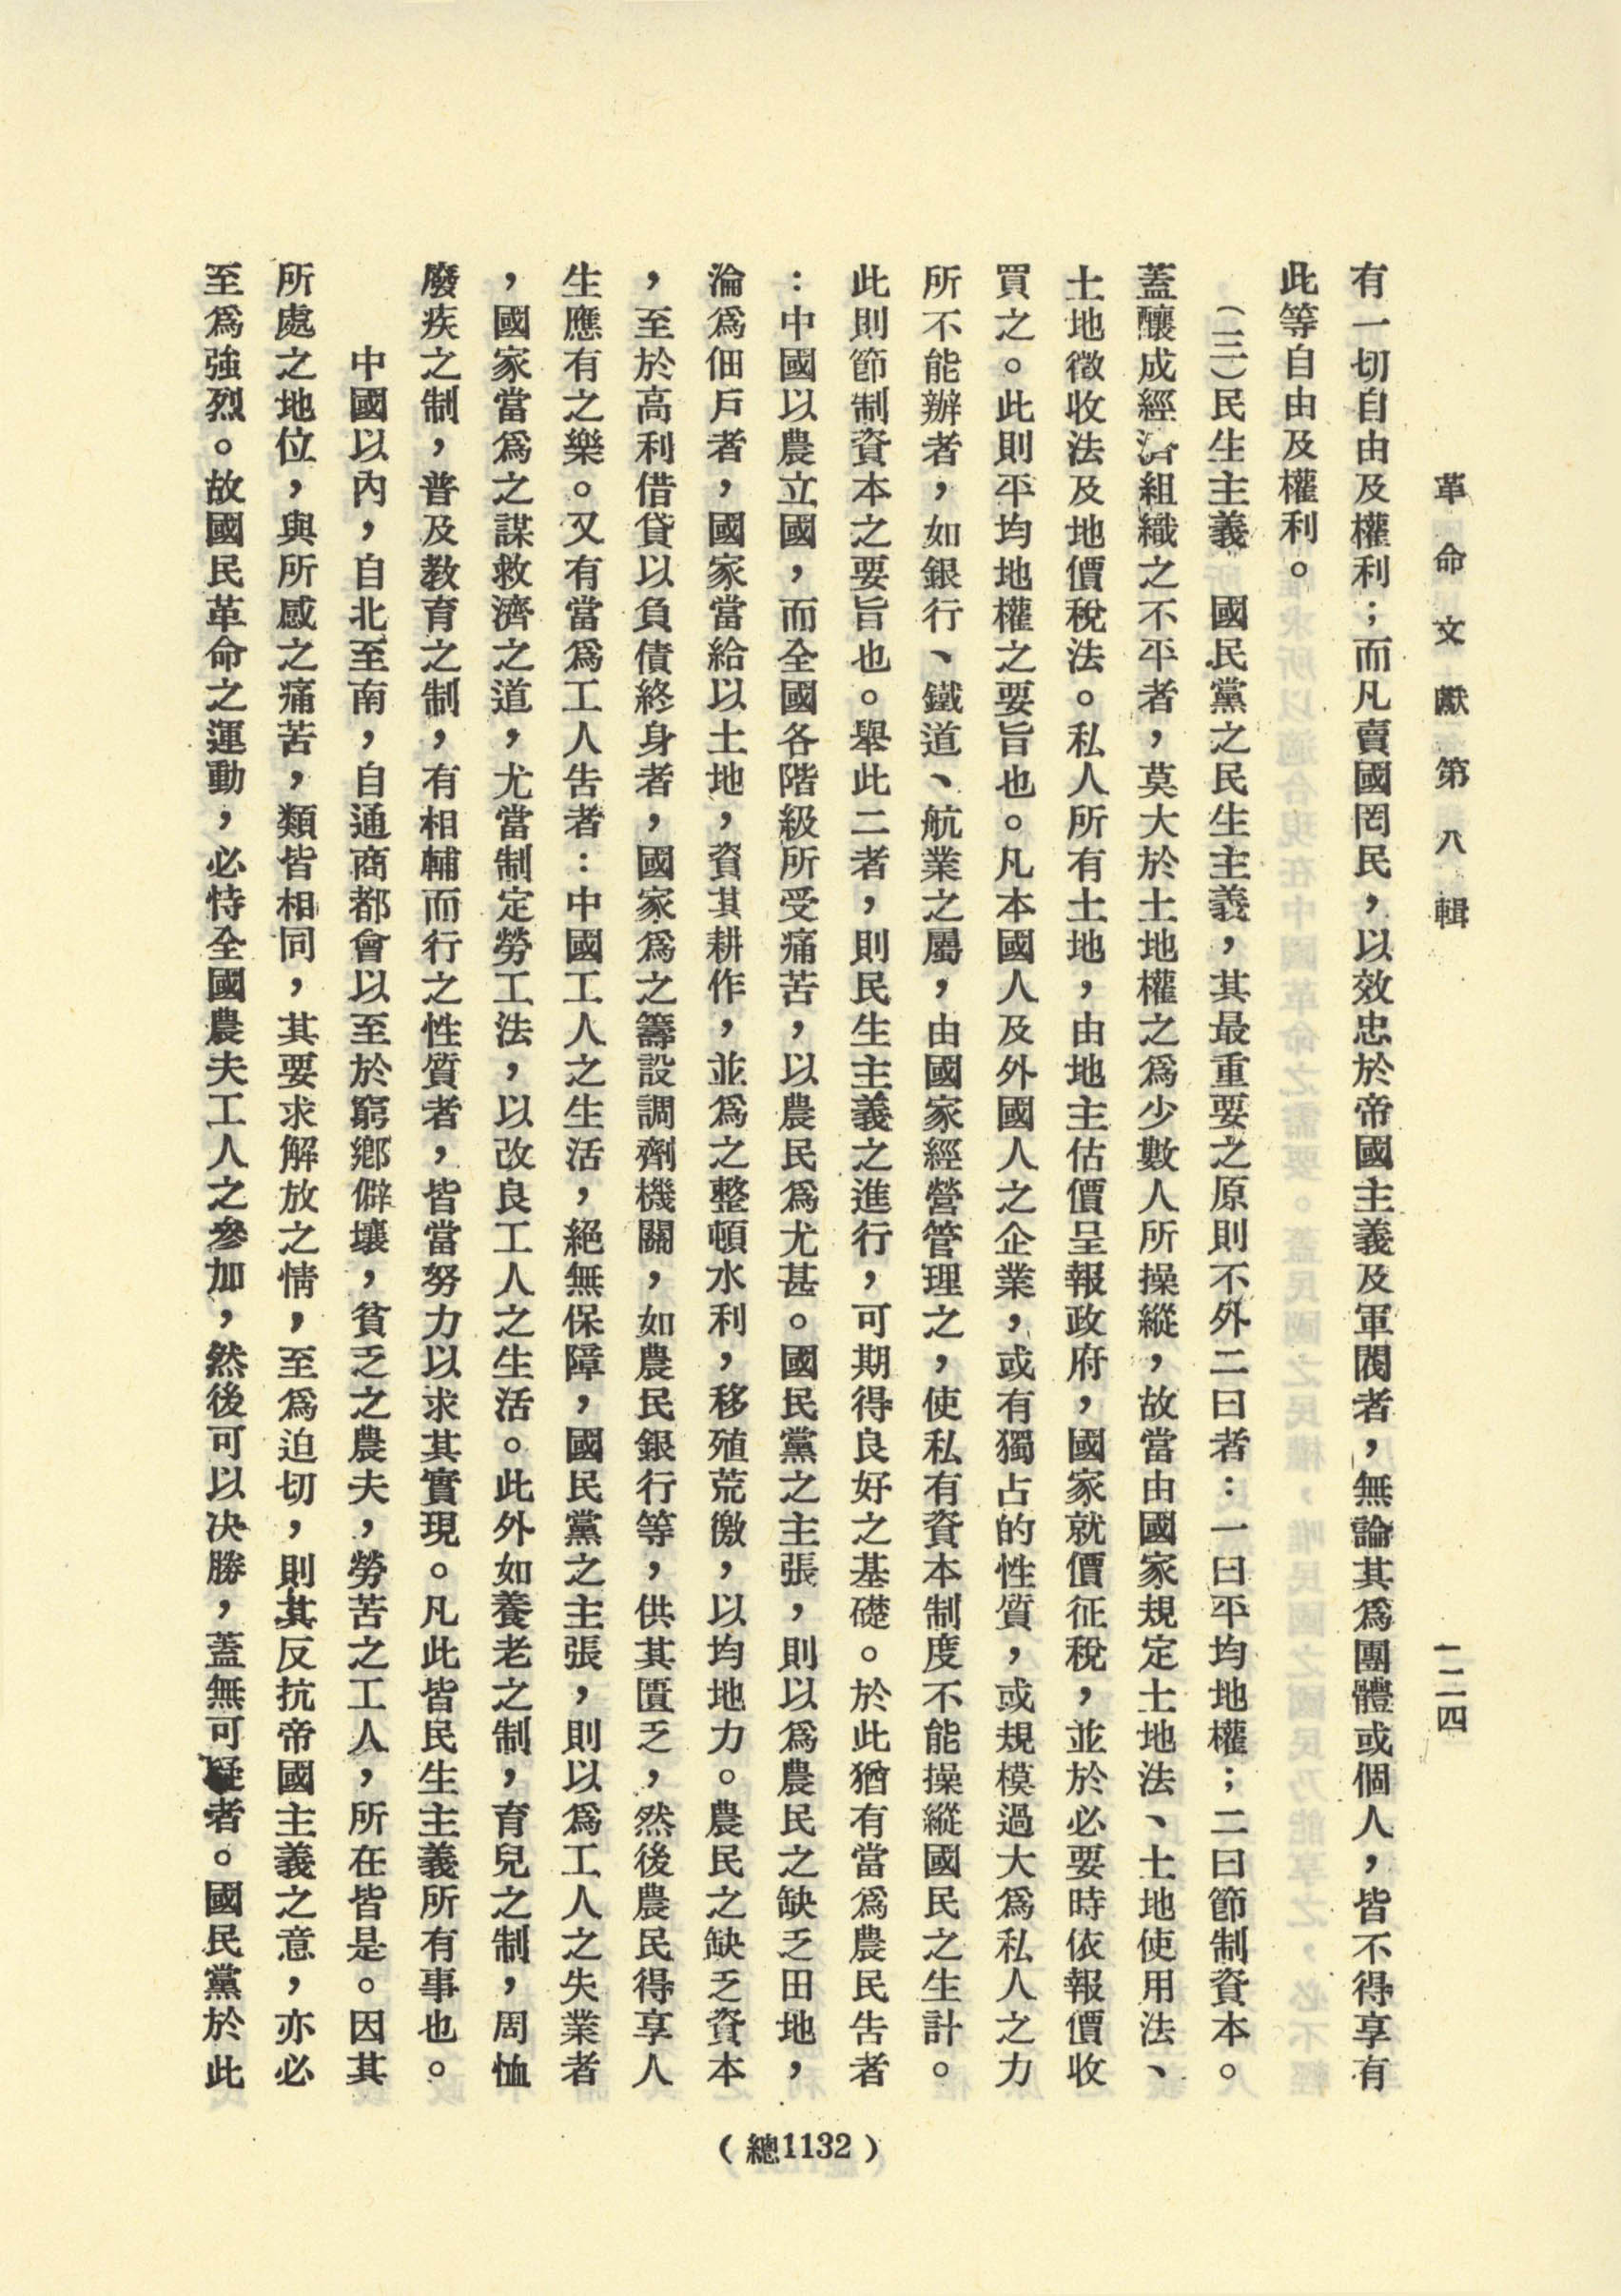 革命文獻第八輯
一二四
有一切自由及權利；而凡賣國罔民，以效忠於帝國主義及軍閥者，無論其爲團體或個人，皆不得享有
此等自由及權利。
（三）民生主義　國民黨之民生主義，其最重要之原則不外二曰者：一曰平均地權；二曰節制資本。
蓋釀成經濟組織之不平者，莫大於土地權之爲少數人所操縱，故當由國家規定土地法、土地使用法、
土地徵收法及地價稅法。私人所有土地，由地主估價呈報政府，國家就價征稅，並於必要時依報價收
買之。此則平均地權之要旨也。凡本國人及外國人之企業，或有獨占的性質，或規模過大爲私人之力
所不能辦者，如銀行、鐵道、航業之屬，由國家經營管理之，使私有資本制度不能操縱國民之生計。
此則節制資本之要旨也。舉此二者，則民生主義之進行，可期得良好之基礎。於此猶有當爲農民告者
：中國以農立國，而全國各階級所受痛苦，以農民爲尤甚。國民黨之主張，則以爲農民之缺乏田地，
淪爲佃戶者，國家當給以土地，資其耕作，並爲之整頓水利，移殖荒徼，以均地力。農民之缺乏資本
，至於高利借貸以負債終身者，國家爲之籌設調劑機關，如農民銀行等，供其匱乏，然後農民得享人
生應有之樂。又有當爲工人告者：中國工人之生活，絕無保障，國民黨之主張，則以爲工人之失業者
，國家當爲之謀救濟之道，尤當制定勞工法，以改良工人之生活。此外如養老之制，育兒之制，周恤
廢疾之制，普及教育之制，有相輔而行之性質者，皆當努力以求其實現。凡此皆民生主義所有事也。
中國以內，自北至南，自通商都會以至於窮鄉僻壤，貧乏之農夫，勞苦之工人，所在皆是。因其
所處之地位，與所感之痛苦，類皆相同，其要求解放之情，至爲迫切，則其反抗帝國主義之意，亦必
至爲強烈。故國民革命之運動，必恃全國農夫工人之參加，然後可以決勝，蓋無可疑者。國民黨於此
（總1132）